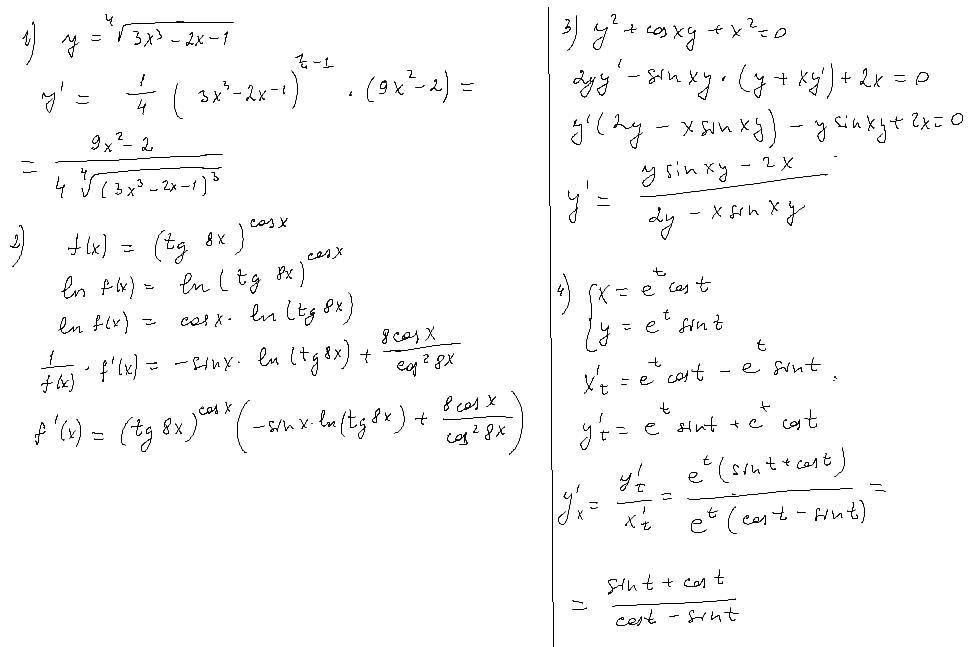 1) y = ⁴√(3x³ − 2x − 1)
y' = 1/4 (3x³ − 2x − 1)^(1/4 − 1) · (9x² − 2) =
= (9x² − 2) / (4 ⁴√((3x³ − 2x − 1)³))
2) f(x) = (tg 8x)^(cos x)
ln f(x) = ln (tg 8x)^(cos x)
ln f(x) = cos x · ln (tg 8x)
1/f(x) · f'(x) = −sin x · ln (tg 8x) + (8 cos x)/(cos² 8x)
f'(x) = (tg 8x)^(cos x) (−sin x · ln (tg 8x) + (8 cos x)/(cos² 8x))
3) y² + cos xy + x² = 0
2yy' − sin xy · (y + xy') + 2x = 0
y' (2y − x sin xy) − y sin xy + 2x = 0
y' = (y sin xy − 2x) / (2y − x sin xy)
4) { x = e^t cos t
y = e^t sin t
x'_t = e^t cos t − e^t sin t.
y'_t = e^t sin t + e^t cos t
y'_x = y'_t / x'_t = (e^t (sin t + cos t)) / (e^t (cos t − sin t)) =
= (sin t + cos t) / (cos t − sin t)